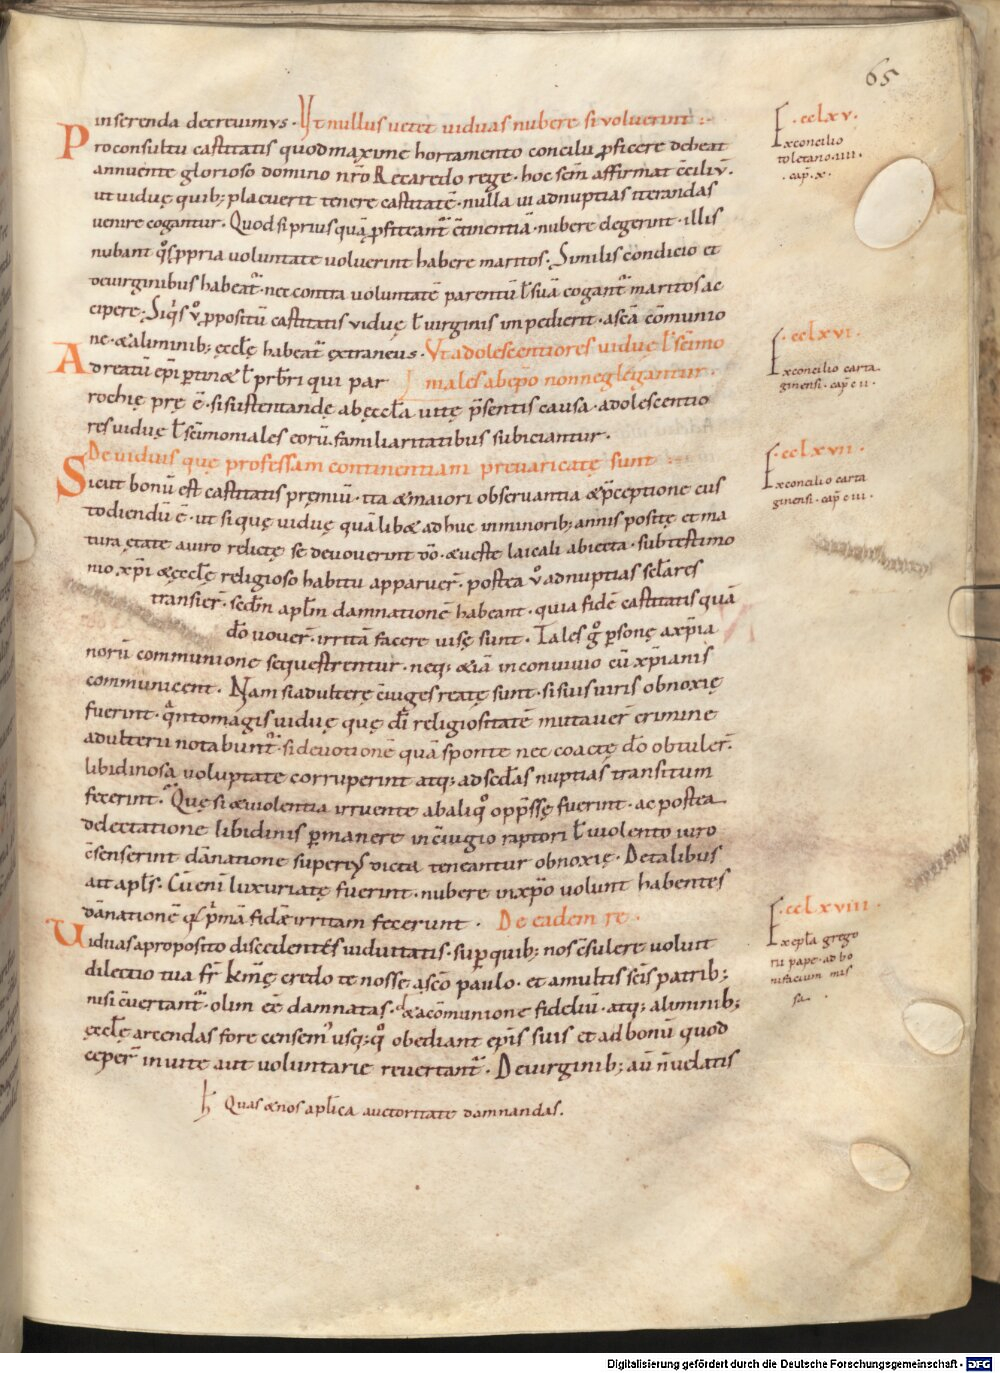 65
inserenda decrevimus · Ut nullus vetet viduas nubere si voluerint :·
Pro consultu castitatis quod maxime hortamento concilii ꝓficere debeat
annuente glorioso domino nr̄o Recaredo rege · hoc scm̄ affirmat cc̄iliū ·
ut viduę quib; placuerit tenere castitatē · nulla vi ad nuptias iterandas
venire cogantur · Quod si prius quā ꝓfiteant᷑ c̄tinentiā · nubere elegerint · illis
nubant q̊s ꝓpria voluntate voluerint habere maritos · Similis condicio et
de virginibus habeat᷑ · nec contra voluntatē parentū ł suā cogant᷑ maritos ac
cipere · Siq's v̊ ꝓpositū castitatis viduę ł virginis impedierit · a scā cōmunio
ne · & a liminib; ęcclę̄ habeat᷑ extraneus · Ut adolescentiores viduę ł sc̄imo
Ad reatū ep̄i ꝑtin& ł prb̄ri qui par
niales ab ep̄o non neglegantur ·
rochię prę ē · si sustentandę ab ęccła vitę p̄sentis causa · adolescentio
res viduę ł sc̄imoniales eorū familiaritatibus subiciantur ·
De viduis quę professam continentiam prevaricatę sunt :·
Sicut bonū est castitatis pręmiū · ita & maiori observantia & p̄ceptione cus
todiendū ē · ut si quę viduę quālib& adhuc in minorib; annis positę et ma
tura ętate a viro relictę se devoverint dō · & veste laicali abiecta · sub testimo
nio xp̄i & ęcclę̄ religioso habitu apparuer̄ · postea v̊ ad nuptias scłares
transier̄ · scd̄m apłm damnationē habeant · quia fidē castitatis quā
dō vover̄ · irritā facere visę sunt · Tales g̊ ꝑsonę a xp̄ia
norū communione sequestrentur · neq; &iā in convivio cū xp̄ianis
communicent · Nam si adulterę c̄iuges reatę sunt · si suis viris obnoxię
fuerint · q̄nto magis viduę quę dī religiositatē mutaver̄ crimine
adulterii notabunt᷑ · si devotionē quā sponte nec coactę dō obtuler̄ ·
libidinosa voluptate corruperint atq; ad scdas nuptias transitum
fecerint · Quę si & violentia irruente ab aliq̊ opp̄ssę fuerint · ac postea
delectatione libidinis ꝑmanere in c̄iugio raptori ł violento viro
c̄senserint dānatione superius dicta teneantur obnoxię · De talibus
ait apłs · Cū enī luxuriatę fuerint · nubere in xp̄o volunt habentes
dānationē q̄ p'mā fidē irritam fecerunt · De eadem re ·
Viduas a proposito discedentes viduitatis · suꝑ quib; nos c̄sulere voluit
dilectio tua fr̄ km̄ę credo te nosse a scō paulo · et a multis sc̄is patrib;
nisi c̄vertant᷑ · olim eē damnatas · & a cōmunione fideliū · atq; a liminib;
ęcclę̄ arcendas fore censem᷒ usq; q̊ obediant ep̄is suis et ad bonū quod
ceper̄ invite aut voluntarie revertant᷑ · De virginib; aū n̄ velatis
h̄ Quas & nos apłica auctoritate damnandas.
· cclxv ·
Ex concilio
toletano · iiii ·
· cap̄ · x ·
· cclxvi ·
Ex concilio carta
ginensi · cap̄ c ii ·
· cclxvii ·
Ex concilio carta
ginensi · cap̄ c iii ·
· cclxviii ·
Ex epła grego
rii pape · ad bo
nifacium mis
sa ·
Digitalisierung gefördert durch die Deutsche Forschungsgemeinschaft - DFG